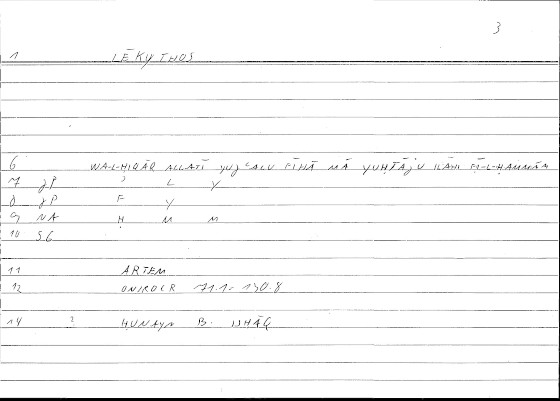 3
1 LĒKYTHOS
6 WA-L-ḤIQĀQ ALLATĪ YUǦʿALU FĪHĀ MĀ YUḤTĀǦU ILĀHI FĪ-L-ḤAMMĀM
7 gP ʾ L Y
8 gP F Y
9 NA Ḥ M M
10 SG
11 ARTEM
12 ONIROCR 71.1 130.8
14 ? ḤUNAYN B. ISḤĀQ